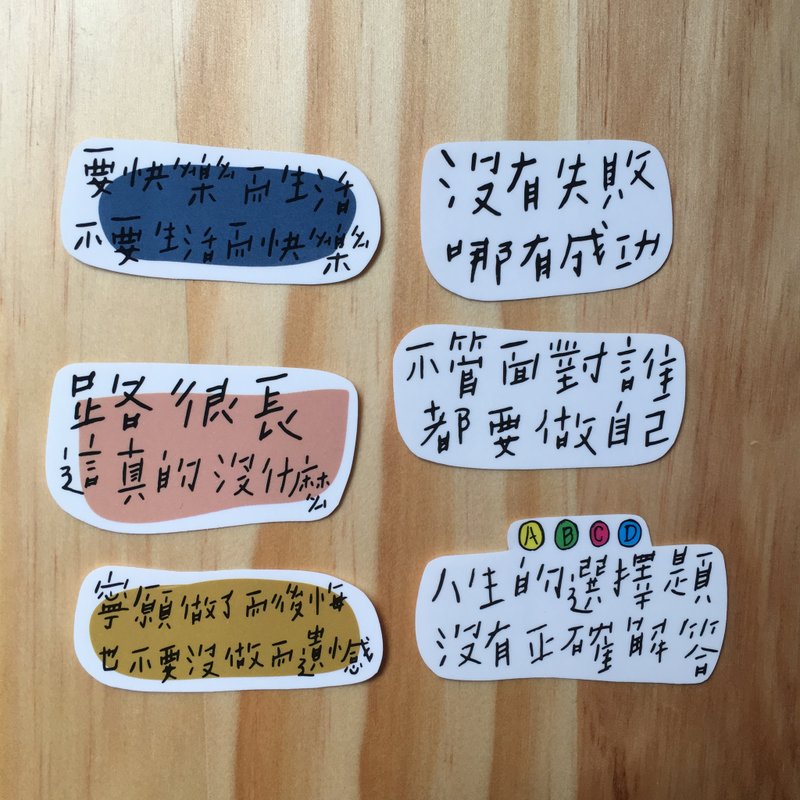 要快樂而生活
不要生活而快樂
沒有失敗
哪有成功
路很長
這真的沒什麼
不管面對誰
都要做自己
寧願做了而後悔
也不要沒做而遺憾
A B C D
人生的選擇題
沒有正確解答